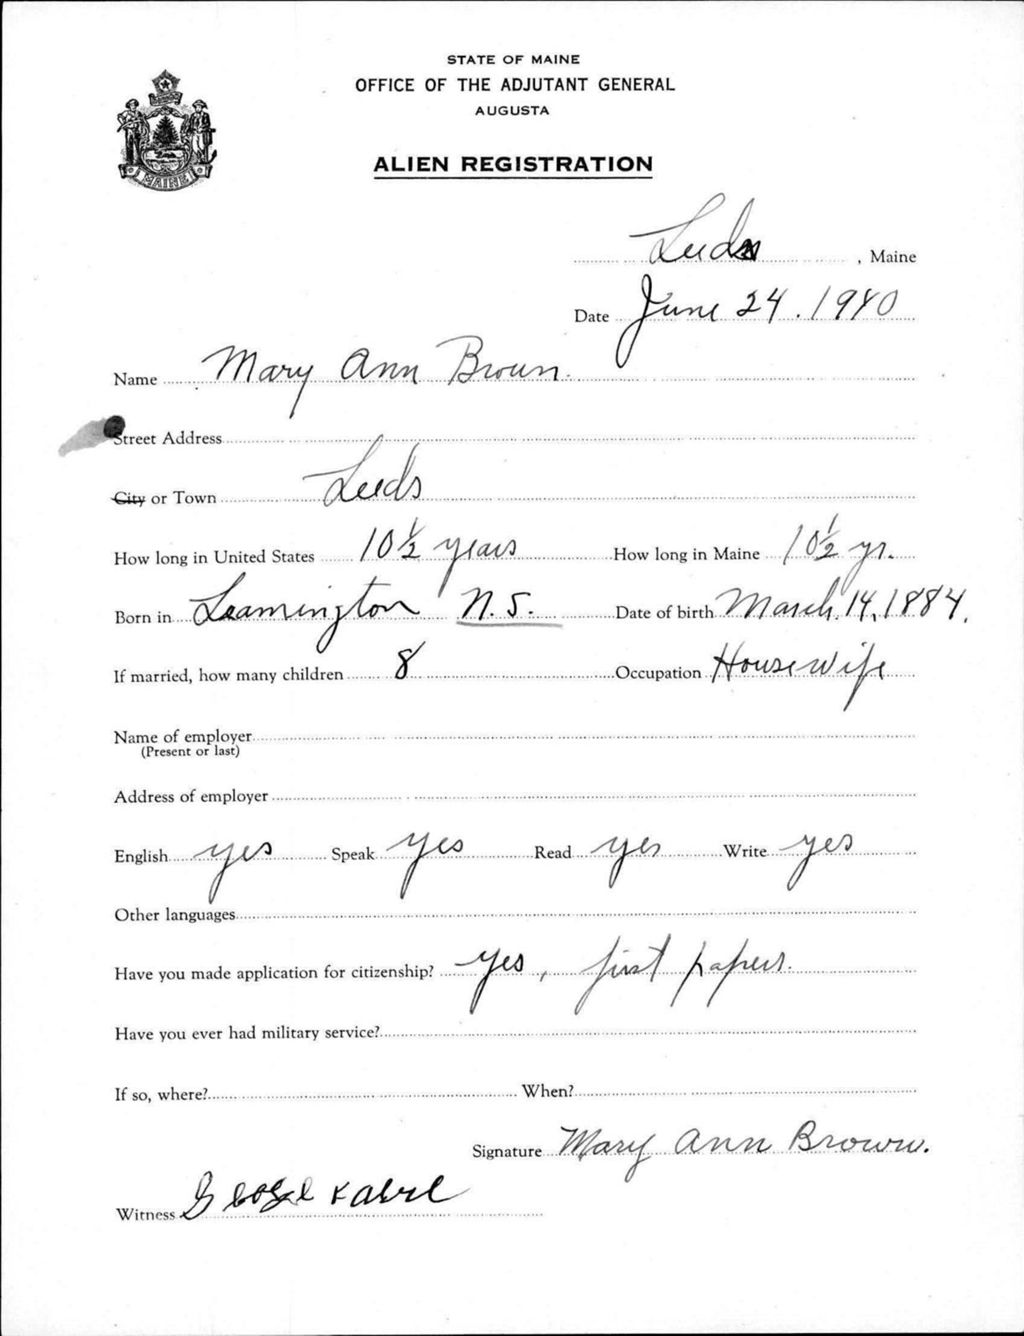 STATE OF MAINE
OFFICE OF THE ADJUTANT GENERAL
AUGUSTA
ALIEN REGISTRATION
MAINE
Leeds, Maine
Date June 24. 1940
Name Mary Ann Brown.
Street Address
City or Town Leeds
How long in United States 10½ years How long in Maine 10½ yr.
Born in Leamington N.S. Date of birth March 14, 1884.
If married, how many children 8 Occupation Housewife
Name of employer
(Present or last)
Address of employer
English yes Speak yes Read yes Write yes
Other languages
Have you made application for citizenship? yes, first papers.
Have you ever had military service?
If so, where? When?
Signature Mary Ann Brown.
Witness George